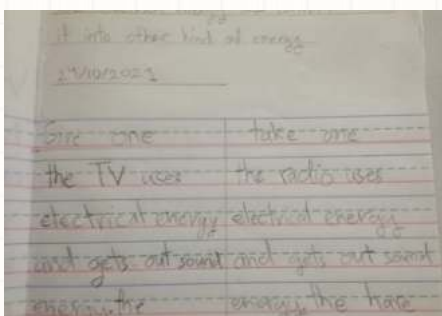 it into other kind of energy
Give one take one
the TV uses the radio uses
electrical energy electrical energy
and gets out sound and gets out sound
energy the energy the